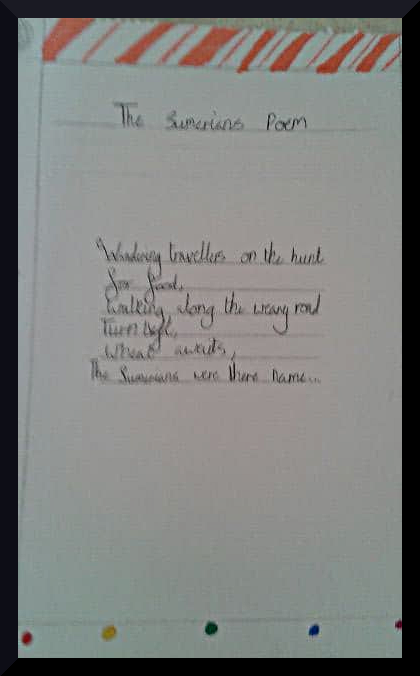 The Sumerians Poem
Wandering travellers on the hunt
for food,
Walking along the weary road
Turn left,
Wheat awaits,
The Sumerians were there name...